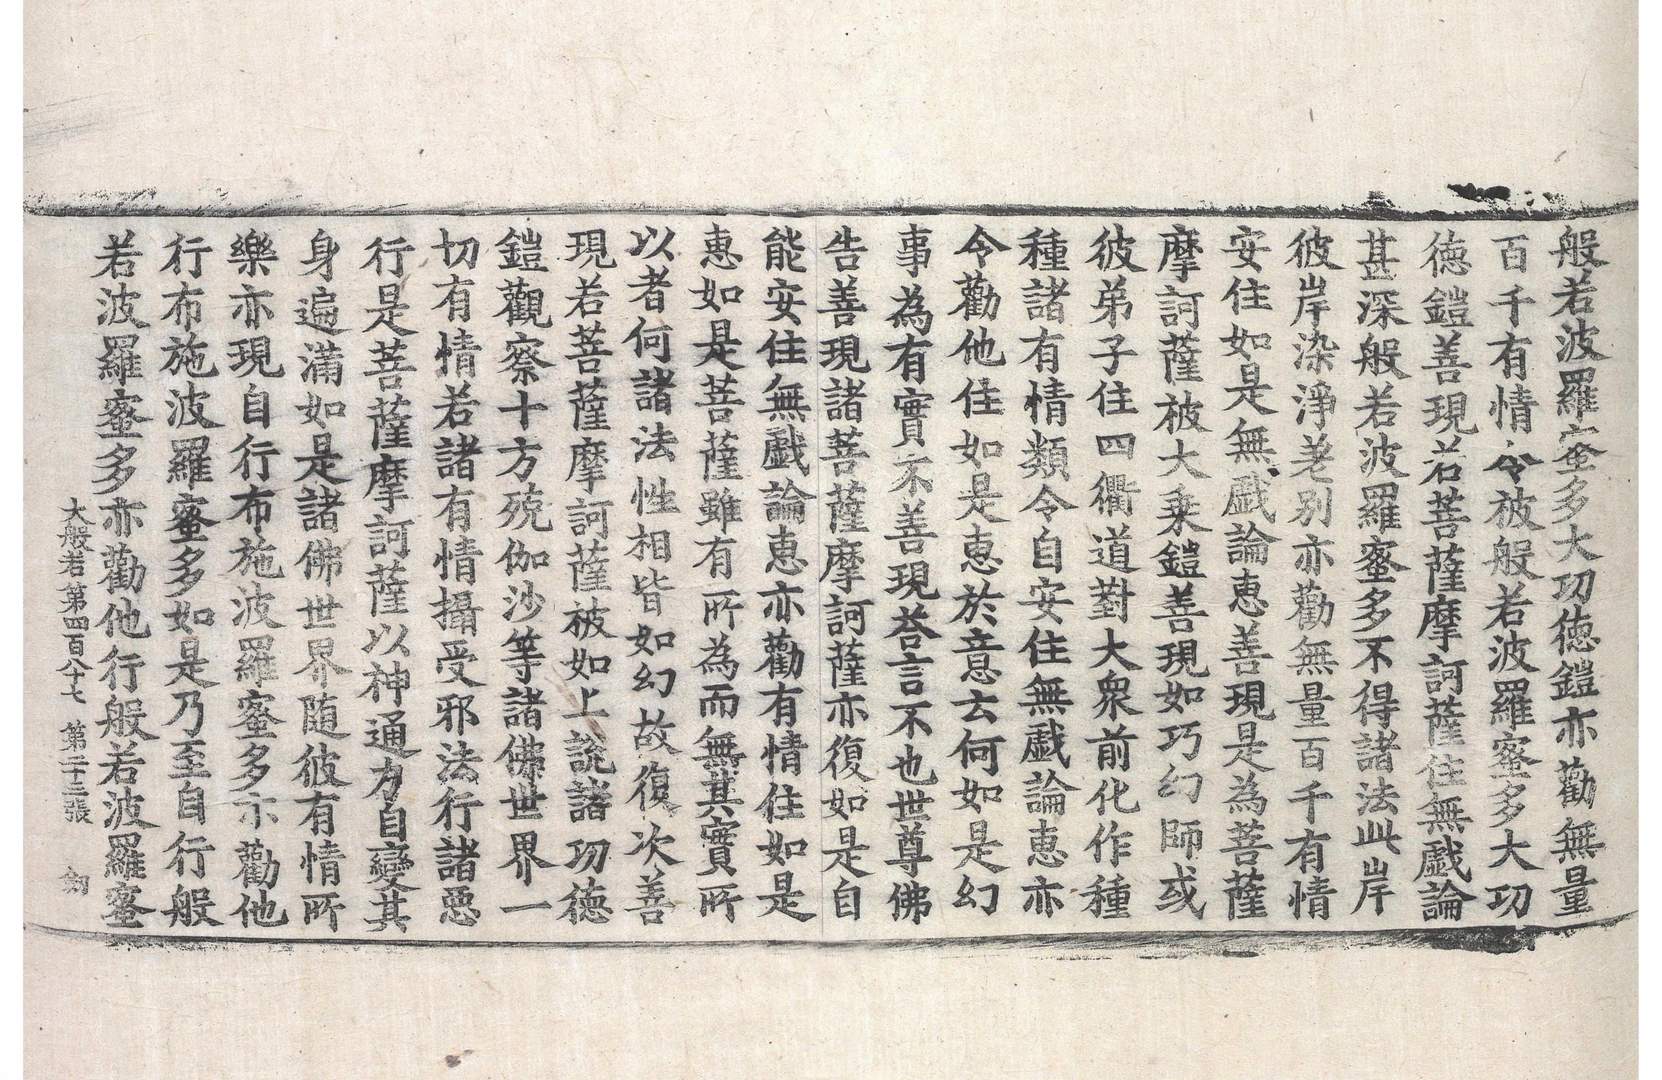 般若波羅蜜多大功徳鎧亦勸無量
百千有情令被般若波羅蜜多大功
徳鎧善現若菩薩摩訶薩住無戱論
甚深般若波羅蜜多不得諸法此岸
彼岸染淨差别亦勸無量百千有情
安住如是無戱論恵善現是為菩薩
摩訶薩被大乗鎧善現如巧幻師或
彼弟子住四衢道對大衆前化作種
種諸有情類令自安住無戱論恵亦
令勸他住如是恵於意云何如是幻
事為有實不善現荅言不也世尊佛
告善現諸菩薩摩訶薩亦復如是自
能安住無戱論恵亦勸有情住如是
恵如是菩薩雖有所為而無其實所
以者何諸法性相皆如幻故復次善
現若菩薩摩訶薩被如上說諸功徳
鎧觀察十方殑伽沙等諸佛世界一
切有情若諸有情攝受邪法行諸惡
行是菩薩摩訶薩以神通力自變其
身遍滿如是諸佛世界随彼有情所
樂亦現自行布施波羅蜜多亦勸他
行布施波羅蜜多如是乃至自行般
若波羅蜜多亦勸他行般若波羅蜜
大般若第四百八十七　第二十三張　劒